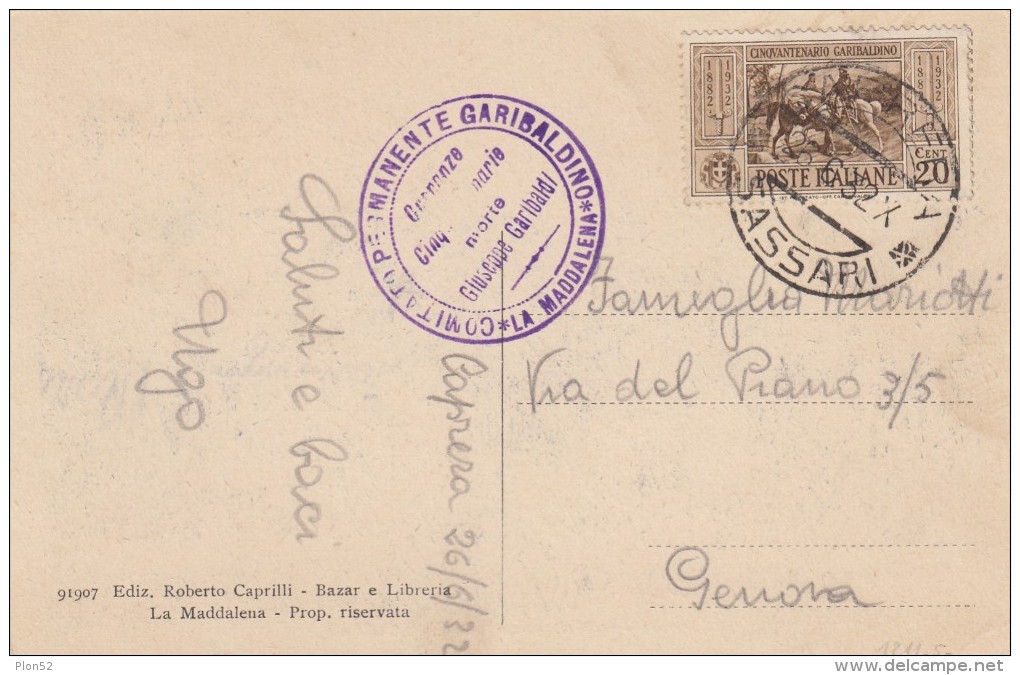 CINQVANTENARIO GARIBALDINO
1882
1932
1882
1932
POSTE ITALIANE
CENT 20
SASSARI
COMITATO PERMANENTE GARIBALDINO
* LA MADDALENA *
Cinq nario
morte
Giuseppe Garibaldi
Saluti e baci
Ugo
Caprera 26/6/32
Famiglia Mariotti
Via del Piano 3/5
Genova
91907 Ediz. Roberto Caprilli - Bazar e Libreria
La Maddalena - Prop. riservata
Plon52
delcampe.net